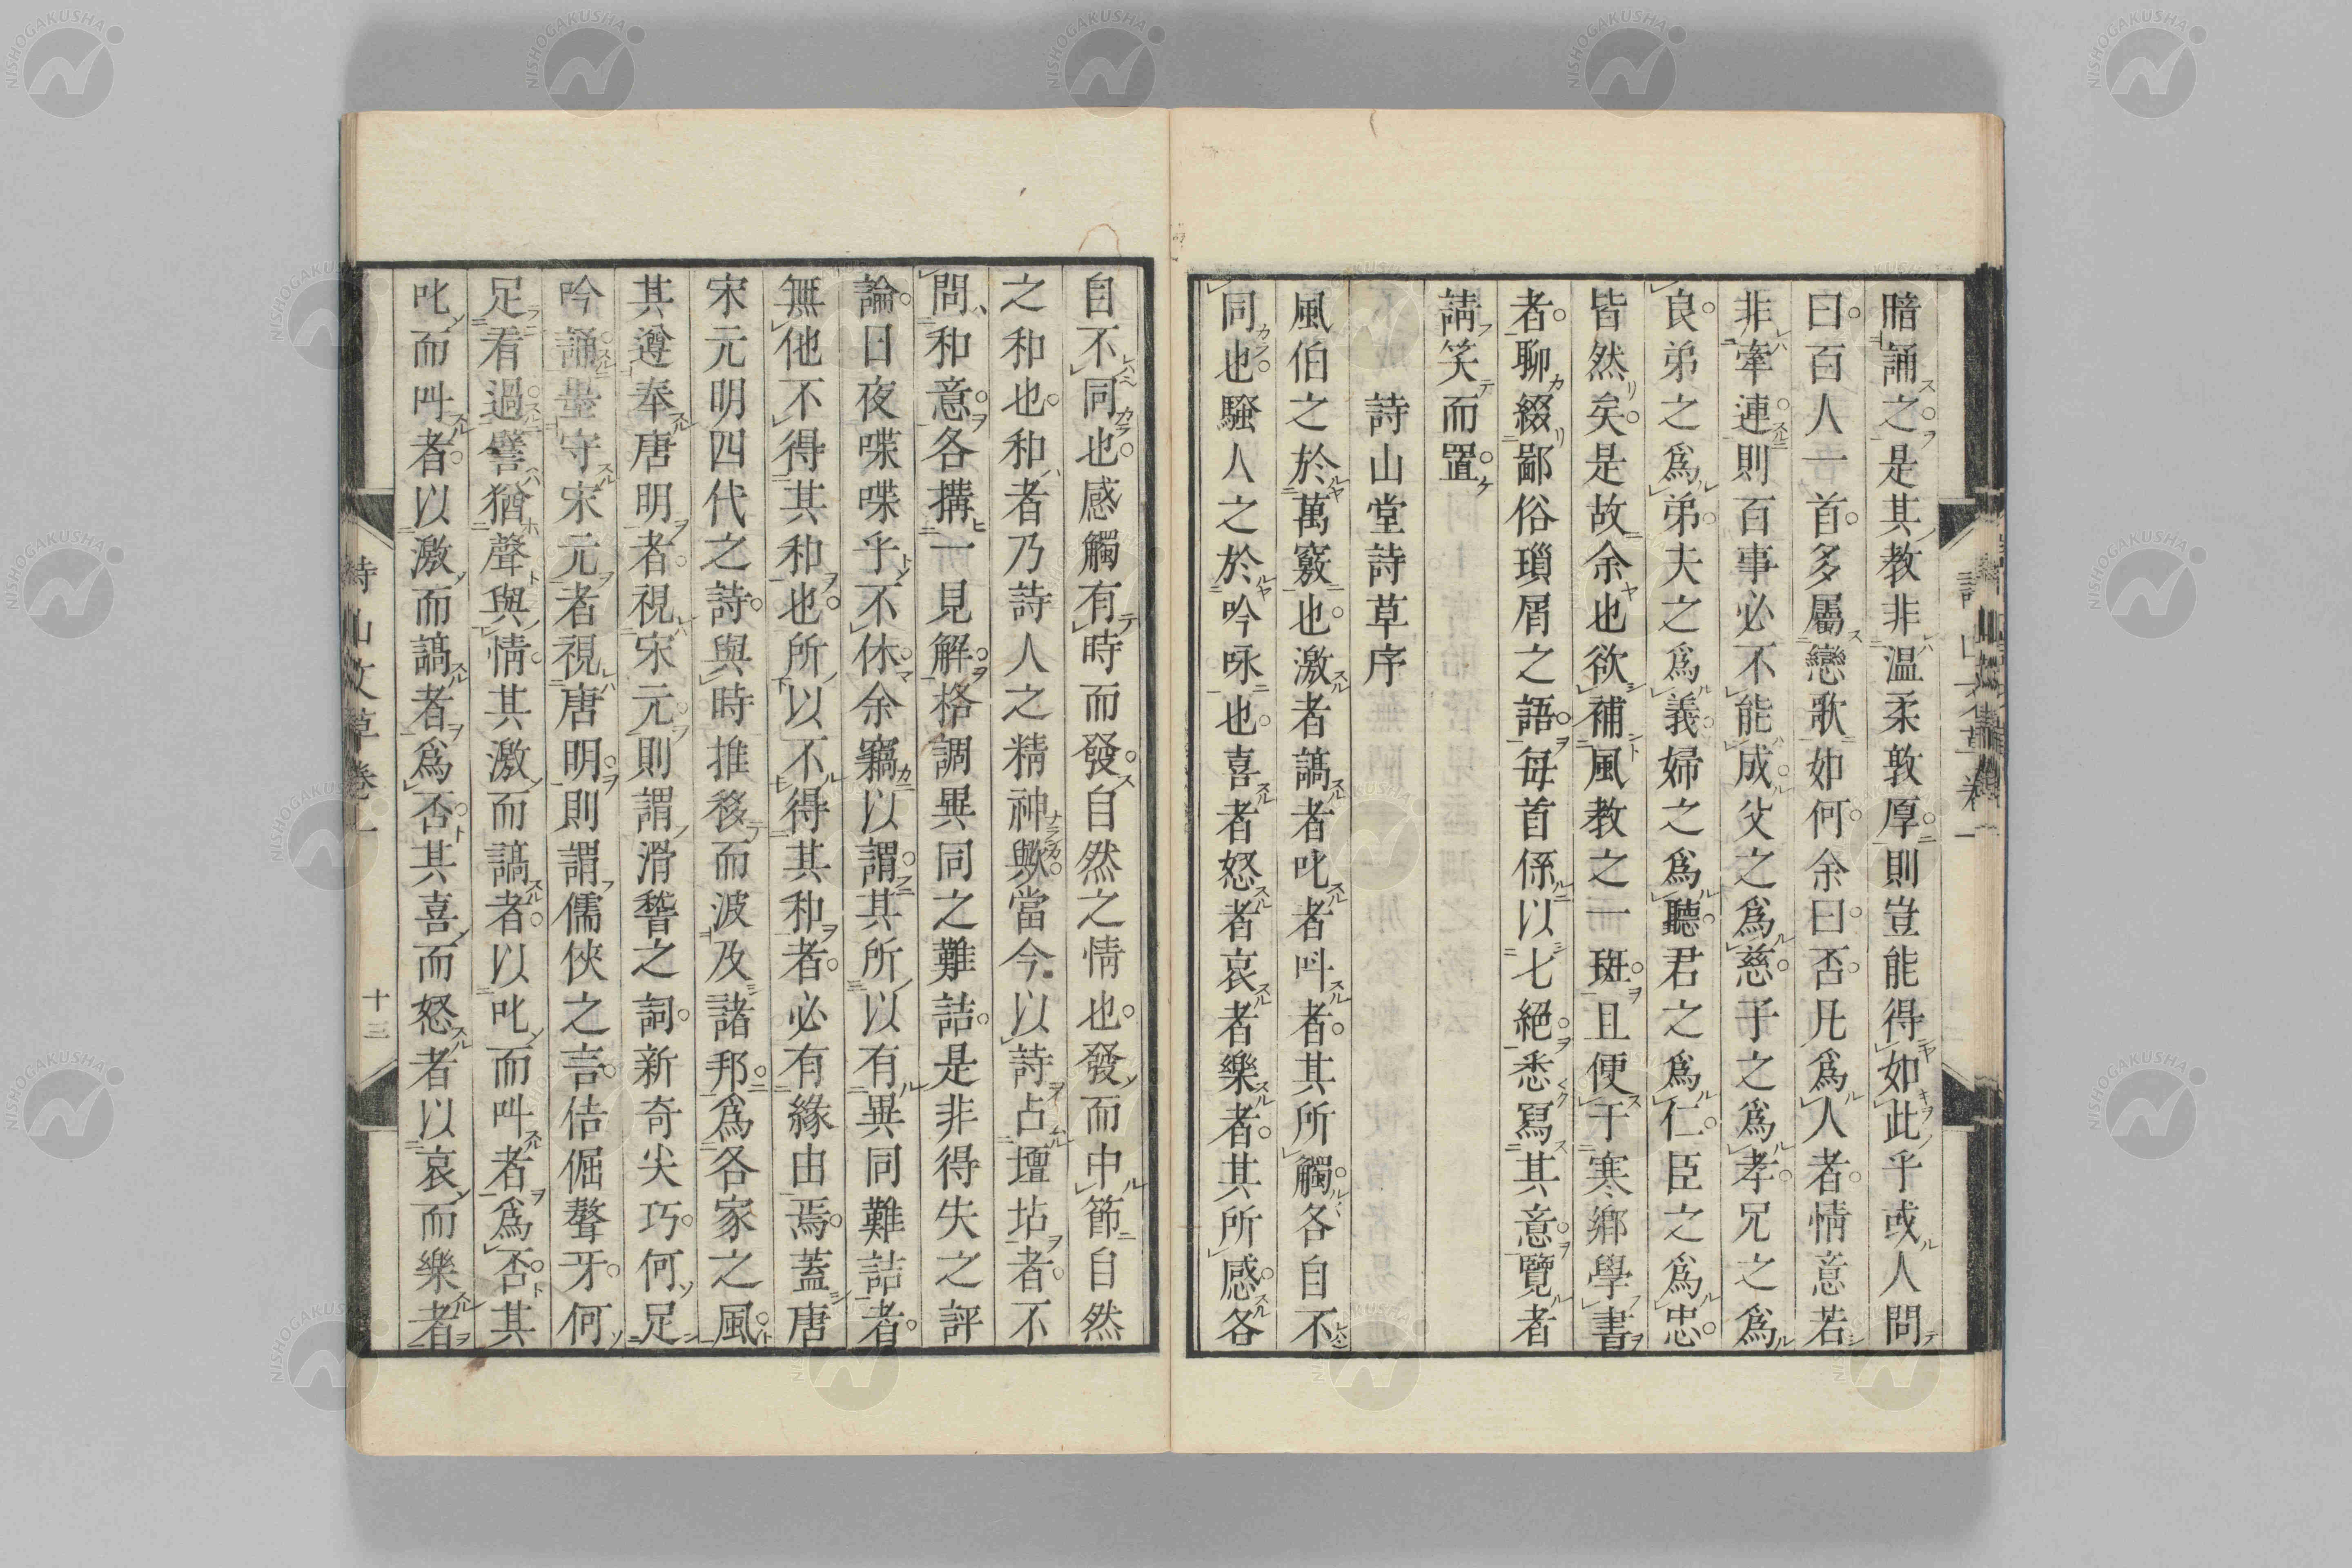 暗誦之是其教非温柔敦厚則豈能得如此乎或人問
曰百人一首多屬戀歌如何余曰否凡爲人者情意若
非牽連則百事必不能成父之爲慈子之爲孝兄之爲
良弟之爲弟夫之爲義婦之爲聽君之爲仁臣之爲忠
皆然矣是故余也欲補風教之一斑且便于寒鄉學書
者聊綴鄙俗瑣屑之語每首係以七絕悉寫其意覽者
請笑而置
詩山堂詩草序
風伯之於萬竅也激者謞者叱者叫者其所觸各自不
同也騷人之於吟咏也喜者怒者哀者樂者其所感各
自不同也感觸有時而發自然之情也發而中節自然
之和也和者乃詩人之精神歟當今以詩占壇坫者不
問和意各搆一見解格調異同之難詰是非得失之評
論日夜喋喋乎不休余竊以謂其所以有異同難詰者
無他不得其和也所以不得其和者必有緣由焉蓋唐
宋元明四代之詩與時推移而波及諸邦爲各家之風
其遵奉唐明者視宋元則謂滑稽之詞新奇尖巧何足
吟誦墨守宋元者視唐明則謂儒俠之言佶倔聱牙何
足看過譬猶聲與情其激而謞者以叱而叫者爲否其
叱而叫者以激而謞者爲否其喜而怒者以哀而樂者
詩山文草卷一
十三